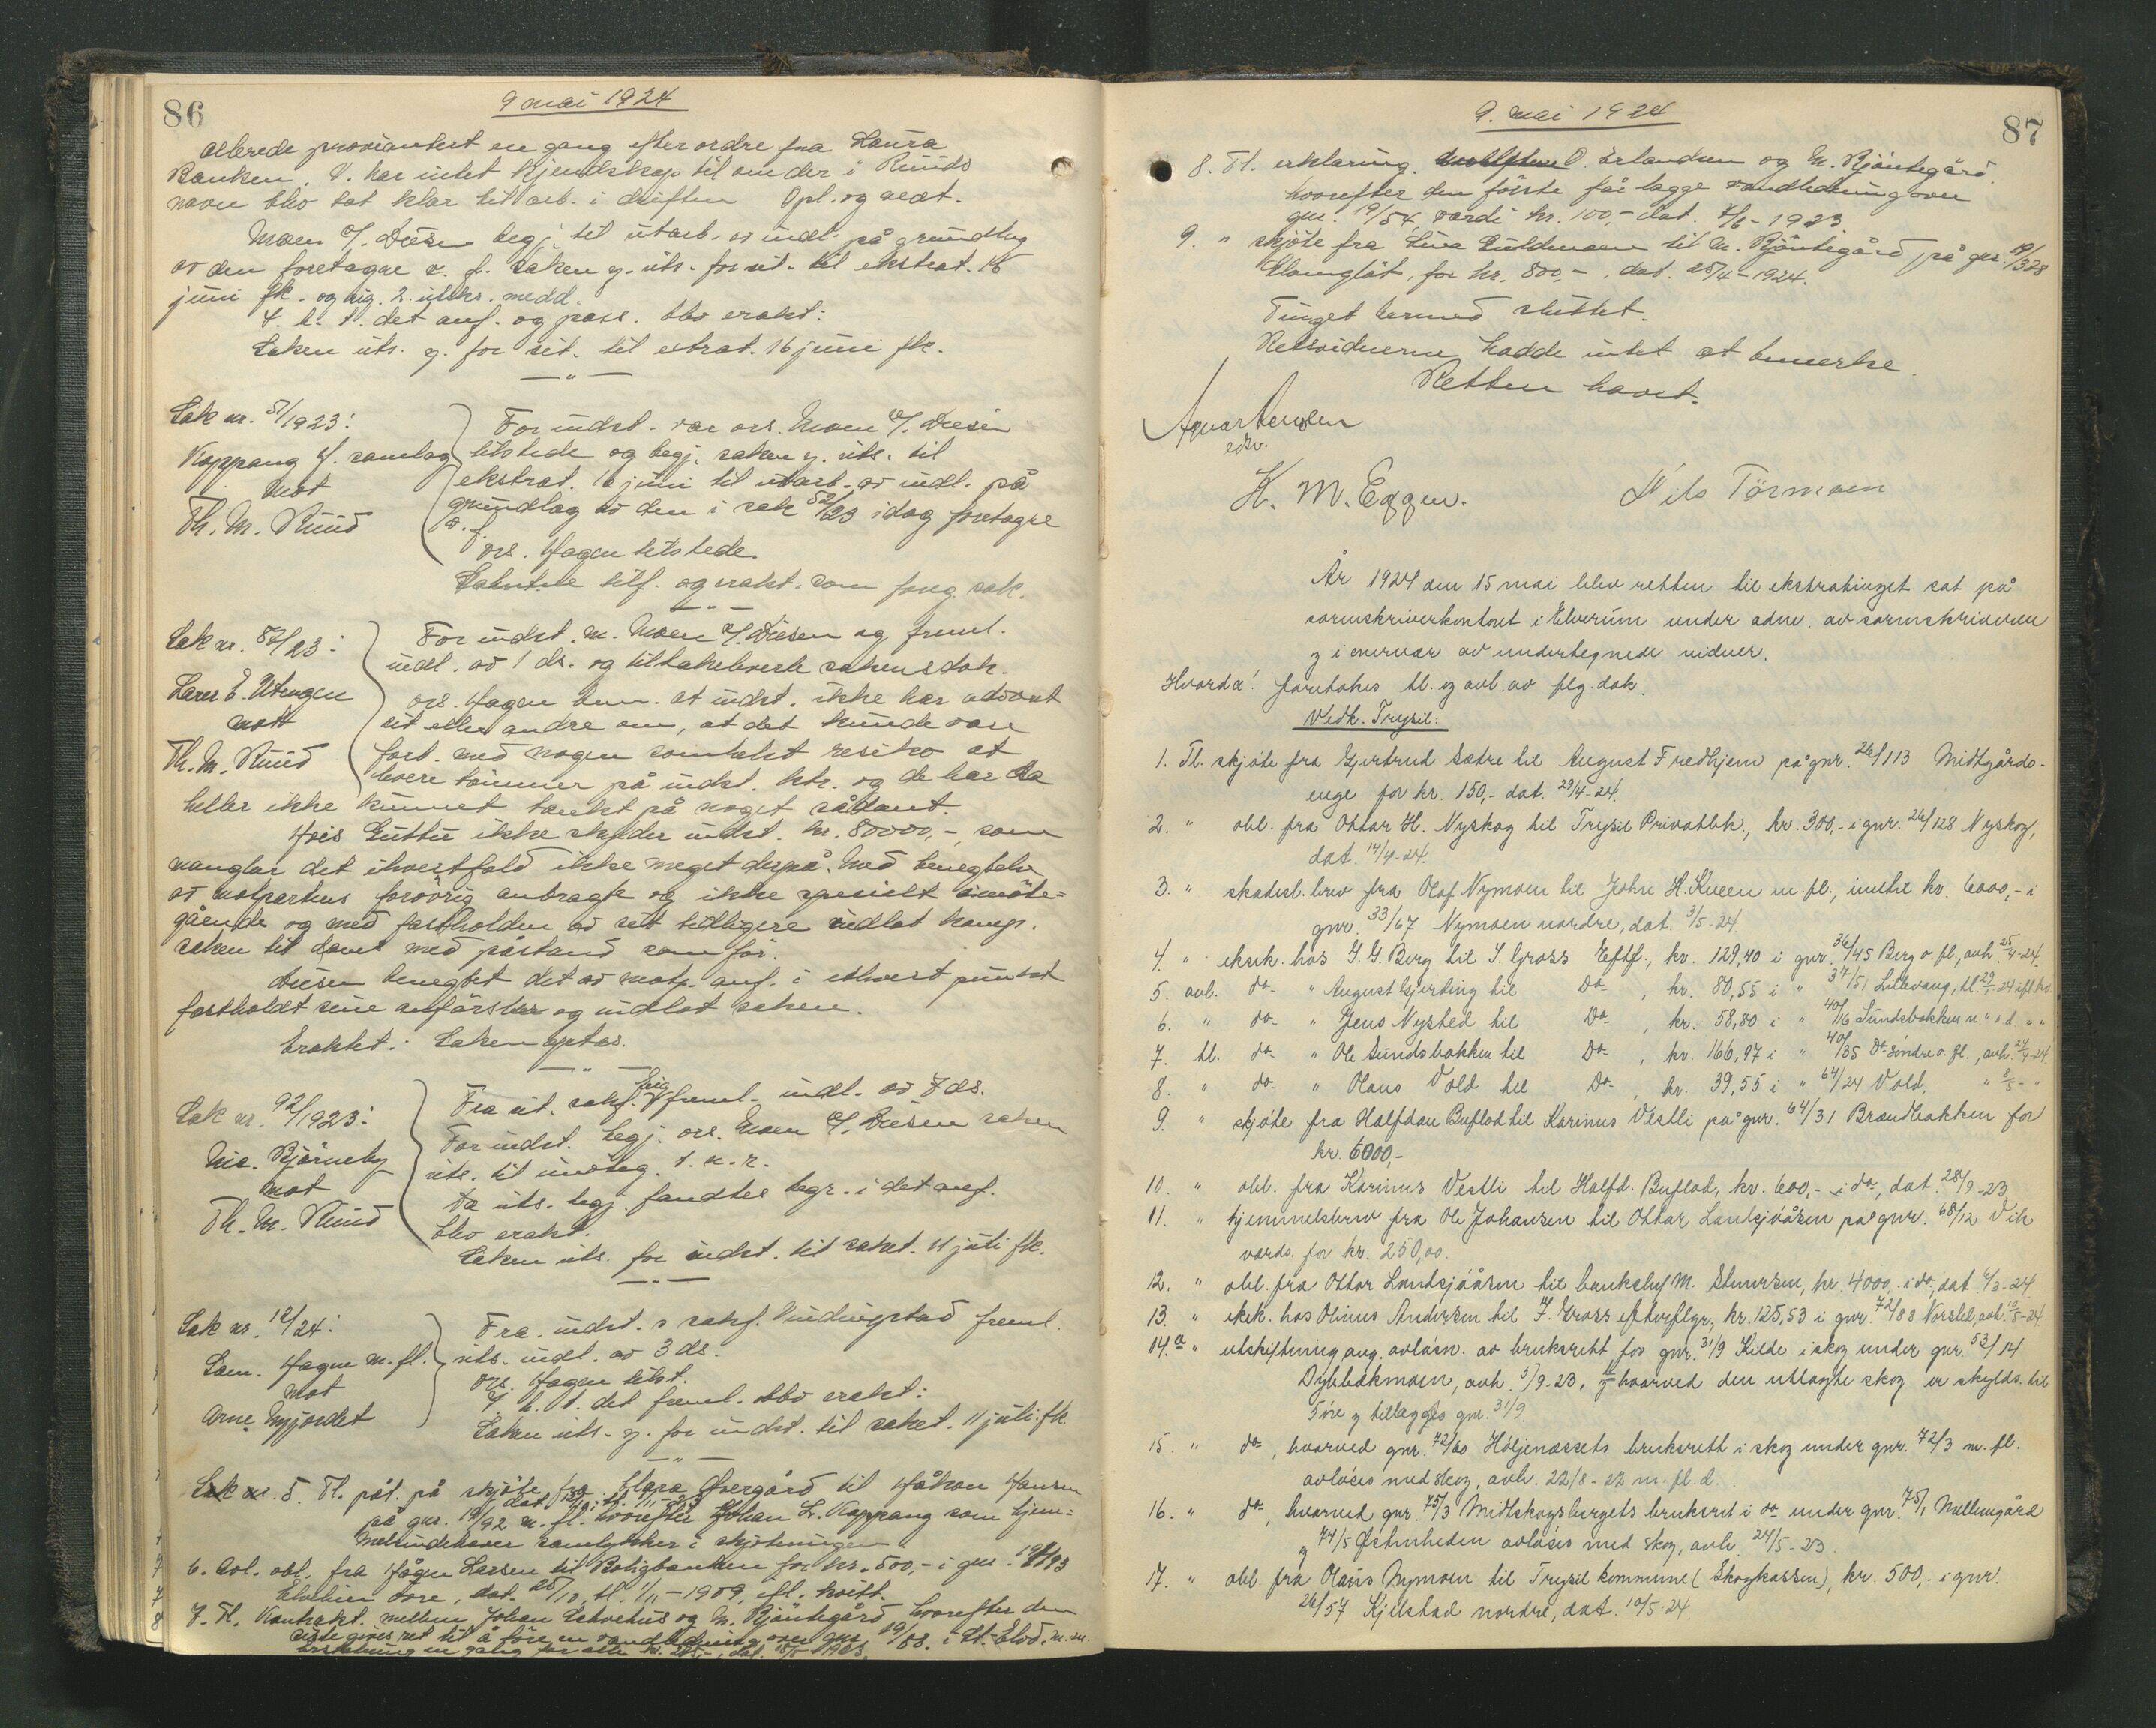 86
9 mai 1924
allerede proviantert en gang efter ordre fra Laura
Banken. V. har intet kjendskap til om der i Ruuds
navn blev tat klar til arb. i driften Opl. og vedt.
Moen v/ Diesen begj. til utarb. av indl. på grundlag
av den foretagne v. f. saken y. uts. for sit. til ekstrat. 16
juni fk. og sig. 2. utskr. medd.
S. h. t. det anf. og pass. blev erakt:
Saken uts. y. for sit. til extrat. 16 juni fk.
Sak nr. 51/1923:
Koppang H. samlag
mot
Th. M. Ruud
For indst. var ors. Moen v/ Diesen
tilstede og begj. saken y. uts. til
ekstrat. 16 juni til utarb. av indl. på
grundlag av den i sak 52/23 idag foretagne
v. f.
ors. Hagen tilstede.
Saken tilf. og erakt. som foreg. sak.
Sak nr. 87/23:
Lars E. Utengen
mott
Th. M. Ruud
For indst. m. Moen v/ Diesen og freml.
indl. av 1 ds. og tilbakeleverte sakens dok.
ors. Hagen bem. at indst. ikke har advart
sit eller andre om, at det kunde være
forb. med nogen somhelst resiko at
levere tømmer på indst. ktr. og de har da
heller ikke kunnet tænkt på noget sådant.
Hvis Guttu ikke skylder indst. kr. 80000,-, som
mangler det ihvertfald ikke meget derpå. Med benegtelse
av motpartens forøvrig anbragte og ikke specielt imøte=
gående og med fastholden av sit tidligere indlot Hagen
saken til doms med påstand som før.
Diesen benegtet det av motp. anf. i ethvert punkt
fastholdt sine anførsler og indlot saken.
Erakt: Saken optas.
Sak nr. 92/1923:
Nic. Bjørneby
mot
Th. M. Ruud
Fra sit. saksf. Eng freml. indl. av 7 ds.
For indst. begj. ors. Moen v/ Diesen saken
uts. til imøteg. s. n. r.
Da uts. begj. fandtes begr. i det anf.
blev erakt.
Saken uts. for indst. til sakst. 11 juli fk.
Sak nr. 12/24:
Sam. Hagen m. fl.
mot
Arne Myjordet
Fra indst. s saksf. Vindingstad freml.
uts. indl. av 3 ds.
ors. Hagen tilst.
S. h. t. det freml. blev erakt:
Saken uts. y. for indst. til sakst. 11 juli fk.
Sak nr. 5. Tl. påt. på skjøte fra Clara Øvergård til Håkon Hansen
på gnr. 19/92 m. fl. hvorefter Johan L. Koppang som hjem=
melsindehaver samtykker i skjøtningen
6. Avl. obl. fra Hågen Larsen til Boligbanken for kr. 500,- i gnr. 19/193
Elvelien øvre, dat. 25/10, tl. 1/11-1909, ifl. kvitt.
7. Tl. Kontrakt. mellem Johan Letvehus og M. Bjøntegård hvorefter den
siste gives ret til å føre en vandledning over gnr. 19/58. i St-Elvd. m. m.
erstatning en gang for alle kr. 225,-, dat. 15/5 1923.
87
9. mai 1924
8. Tl. erklæring. O. Erlandsen og M. Bjøntegård
hvorefter den første får lægge vandledning over
gnr. 19/54, værdi kr. 100,- dat. 7/6-1923
9. " skjøte fra Lina Guldmoen til M. Bjøntegård på gnr. 19/328
, for kr. 800,-, dat. 25/4-1924.
Tinget hermed sluttet.
Retsvidnerne hadde intet at bemerke.
Retten hævet.
edsv.
K. M. Eggen.
Nils Tørmoen
År 1924 den 15 mai blev retten til ekstratinget sat på
sorenskriverkontoret i Elverum under adm. av sorenskriveren
y i overvær av undertegnede vidner.
Hvorda! foretokes tl. y avl. av flg. dok.
Vedk. Trysil:
1. Tl. skjøte fra Gjertrud Sætre til August Fredhjem på gnr. 26/113 Midtgårds-
enge for kr. 150,- dat. 29/4-24.
2. " obl. fra Ottar H. Nyskog til Trysil Privatbk., kr. 300,- i gnr. 26/128 Nyskog,
dat. 14/4-24.
3. " skadesl. brev fra Olaf Nymoen til John H. Kveen m. fl., inntil kr. 6000,- i
gnr. 33/67 Nymoen nordre, dat. 3/5-24.
4. " eksek. hos G. G. Berg til I. Gross Eftf., kr. 129,40 i gnr. 36/45 Berg o. fl., avh. 25/4-24.
5. avl. do " August Gjerding til Do , kr. 80,55 i " 37/51 Lillevang, tl. 29/1-24 ifl. kv.
6. " do " Jens Nysted til Do , kr. 58,80 i " 40/16 Sundsbakken n. " s d. " "
7. tl. do " Ole Sundsbakken til Do , kr. 166,97 i " 40/35 Do Søndre o. fl., avh. 24/4-24
8. " do " Olaus Vold til Do , kr. 39,55 i " 64/24 Vold, " 8/5-"
9. " skjøte fra Halfdan Buflod til Karinus Vestli på gnr. 64/31 Brændbakken for
kr. 6000,-
10. " obl. fra Karinus Vestli til Halfd. Buflod, kr. 600,- i do, dat. 28/9-23
11. " hjemmelsbrev fra Ole Johansen til Ottar Landsjøåsen på gnr. 68/12 Vik
værds. for kr. 250,00.
12. " obl. fra Ottar Landsjøåsen til bankchef M. Stenersen, kr. 4000,- i do, dat. 6/3-24
13. " eksk. hos Olinus Andersen til F. Gross efterflgr., kr. 125,53 i gnr. 72/88 Norslet, avh. 10/5-24
14.a " utskiftning ang. avløsn. av bruksrett for gnr. 31/9 Kilde i skog under gnr. 53/14
Dybbækmoen, avh. 5/9-23, y hvorved den utlagte skog er skylds. til
5 øre y tillegges gnr. 31/9
15. " do, hvorved gnr. 72/60 Höljenæssets bruksrett i skog under gnr. 72/3 m. fl.
avløses med skog, avh. 22/8-22 m. fl. d.
16. " do, hvorved gnr. 75/3 Midtskogsbergets bruksret i do under gnr. 75/1 Mellemgård
y 74/5 Østenheden avløses med skog, avh. 24/5-23.
17. " obl. fra Olaus Nymoen til Trysil kommune (Skogkassen), kr. 500,- i gnr.
26/57 Kjelstad nordre, dat. 10/5-24.